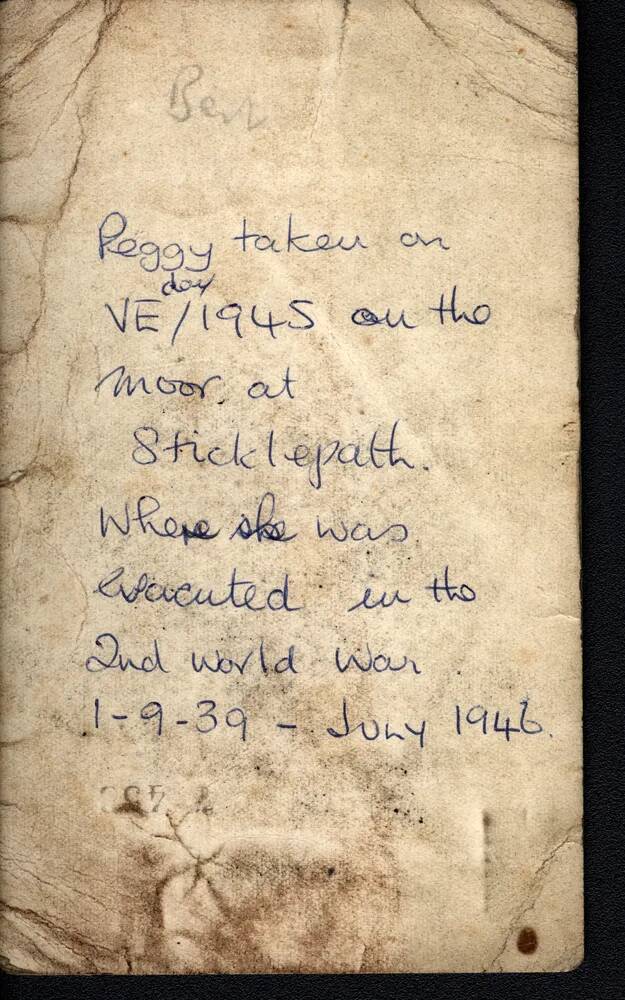 Peggy taken on
VE day/1945 on the
moor at
Sticklepath.
Where she was
evacuted in the
2nd world war
1-9-39 - July 1946.